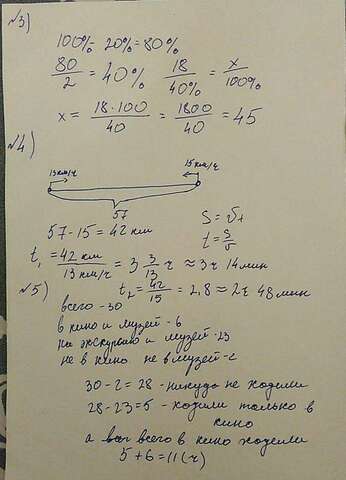 №3)
100% - 20% = 80%
80/2 = 40% 18/40% = x/100%
x = 18·100/40 = 1800/40 = 45
№4)
13 км/ч 15 км/ч
57
57-15 = 42 км
S = vt
t = S/v
t₁ = 42 км/13 км/ч = 3 3/13 ч ≈ 3ч 14 мин
t₂ = 42/15 = 2,8 ≈ 2ч 48 мин
№5)
всего - 30
в кино и музей - 6
на экскурсию и музей - 23
не в кино не в музей - 2
30 - 2 = 28 - никуда не ходили
28 - 23 = 5 - ходили только в
кино
а всего в кино ходили
5 + 6 = 11 (ч)